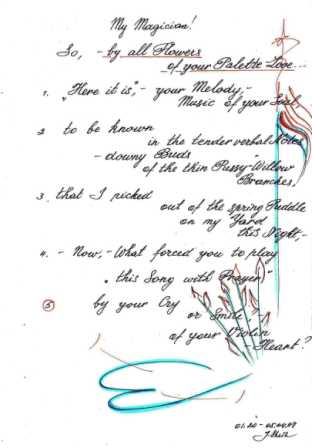 My Magician!
So, - by all Flowers
of your Palette Love...
1. "Here it is", - your Melody, -
Music of your Soul,
2 to be known
in the tender verbal Notes
- downy Buds
of the thin Pussy-Willow
Branches,
3. that I picked
out of the spring Puddle
on my Yard
this Night, -
4. - Now, - What forced you to play
"this Song with Prayer)"
5 by your Cry
or Smile,?
of your Violin
- Heart?